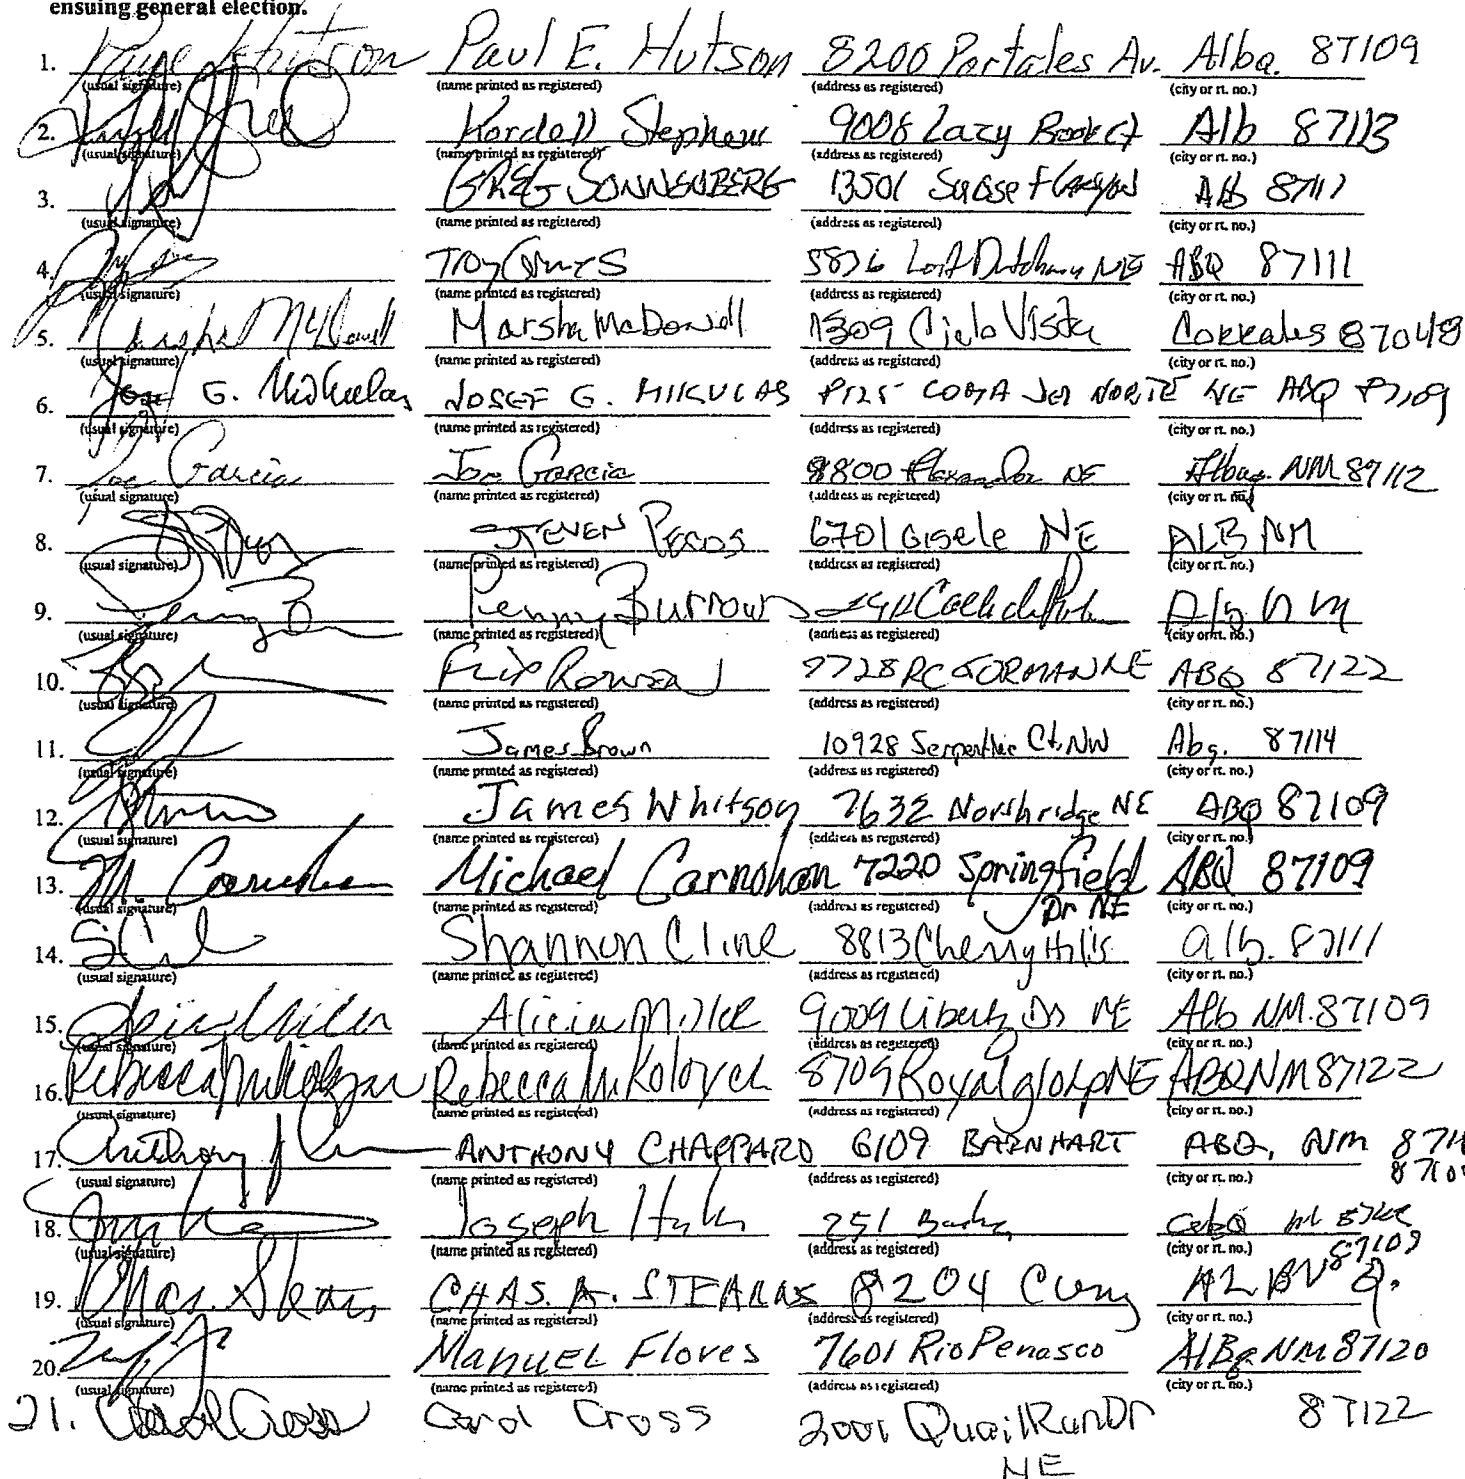 ensuing general election.
1. Paul E. Hutson 8200 Portales Av. Albq. 87109
(usual signature) (name printed as registered) (address as registered) (city or rt. no.)
2. Kordell Stephens 9008 Lazy Brook Ct Alb 87113
(usual signature) (name printed as registered) (address as registered) (city or rt. no.)
3. GREG SONNENBERG 13501 Canyon Alb 87111
(usual signature) (name printed as registered) (address as registered) (city or rt. no.)
4. Troy 5836 Lost Dutchman NE ABQ 87111
(usual signature) (name printed as registered) (address as registered) (city or rt. no.)
5. Marsha McDowell Marsha McDowell 1309 Cielo Vista Corrales 87048
(usual signature) (name printed as registered) (address as registered) (city or rt. no.)
6. G. Mikulas JOSEF G. MIKULAS 8125 LOMA DEL NORTE NE ABQ 87109
(usual signature) (name printed as registered) (address as registered) (city or rt. no.)
7. Joe Garcia Joe Garcia 8800 NE Albuq. NM 87112
(usual signature) (name printed as registered) (address as registered) (city or rt. no.)
8. STEVEN PECOS 6701 Gisele NE ALB NM
(usual signature) (name printed as registered) (address as registered) (city or rt. no.)
9. Penny Burrows Alb NM
(usual signature) (name printed as registered) (address as registered) (city or rt. no.)
10. 7728 RC GORMAN NE ABQ 87122
(usual signature) (name printed as registered) (address as registered) (city or rt. no.)
11. James Brown 10928 Serpentine Ct. NW Abq. 87114
(usual signature) (name printed as registered) (address as registered) (city or rt. no.)
12. James Whitson 7632 Northridge NE ABQ 87109
(usual signature) (name printed as registered) (address as registered) (city or rt. no.)
13. M. Carnohan Michael Carnohan 7220 Springfield ABQ 87109
Dr NE
(usual signature) (name printed as registered) (address as registered) (city or rt. no.)
14. Shannon Cline 8813 Cherry Hills alb. 87111
(usual signature) (name printed as registered) (address as registered) (city or rt. no.)
15. Alicia Miller 9009 Liberty Dr NE Alb NM. 87109
(usual signature) (name printed as registered) (address as registered) (city or rt. no.)
16. Rebecca Rebecca 8709 Royal NE ABQ NM 87122
(usual signature) (name printed as registered) (address as registered) (city or rt. no.)
17. Anthony ANTHONY CHAPPARO 6109 BARNHART ABQ, NM
(usual signature) (name printed as registered) (address as registered) (city or rt. no.)
18. Joseph 251
87109
(usual signature) (name printed as registered) (address as registered) (city or rt. no.)
19. Chas. Stearns CHAS. A. STEARNS 8204 ALBUQ.
(usual signature) (name printed as registered) (address as registered) (city or rt. no.)
20. MANUEL Flores 7601 Rio Penasco AlBq NM 87120
(usual signature) (name printed as registered) (address as registered) (city or rt. no.)
21. Carol Cross Carol Cross 2001 Quail Run Dr 87122
NE